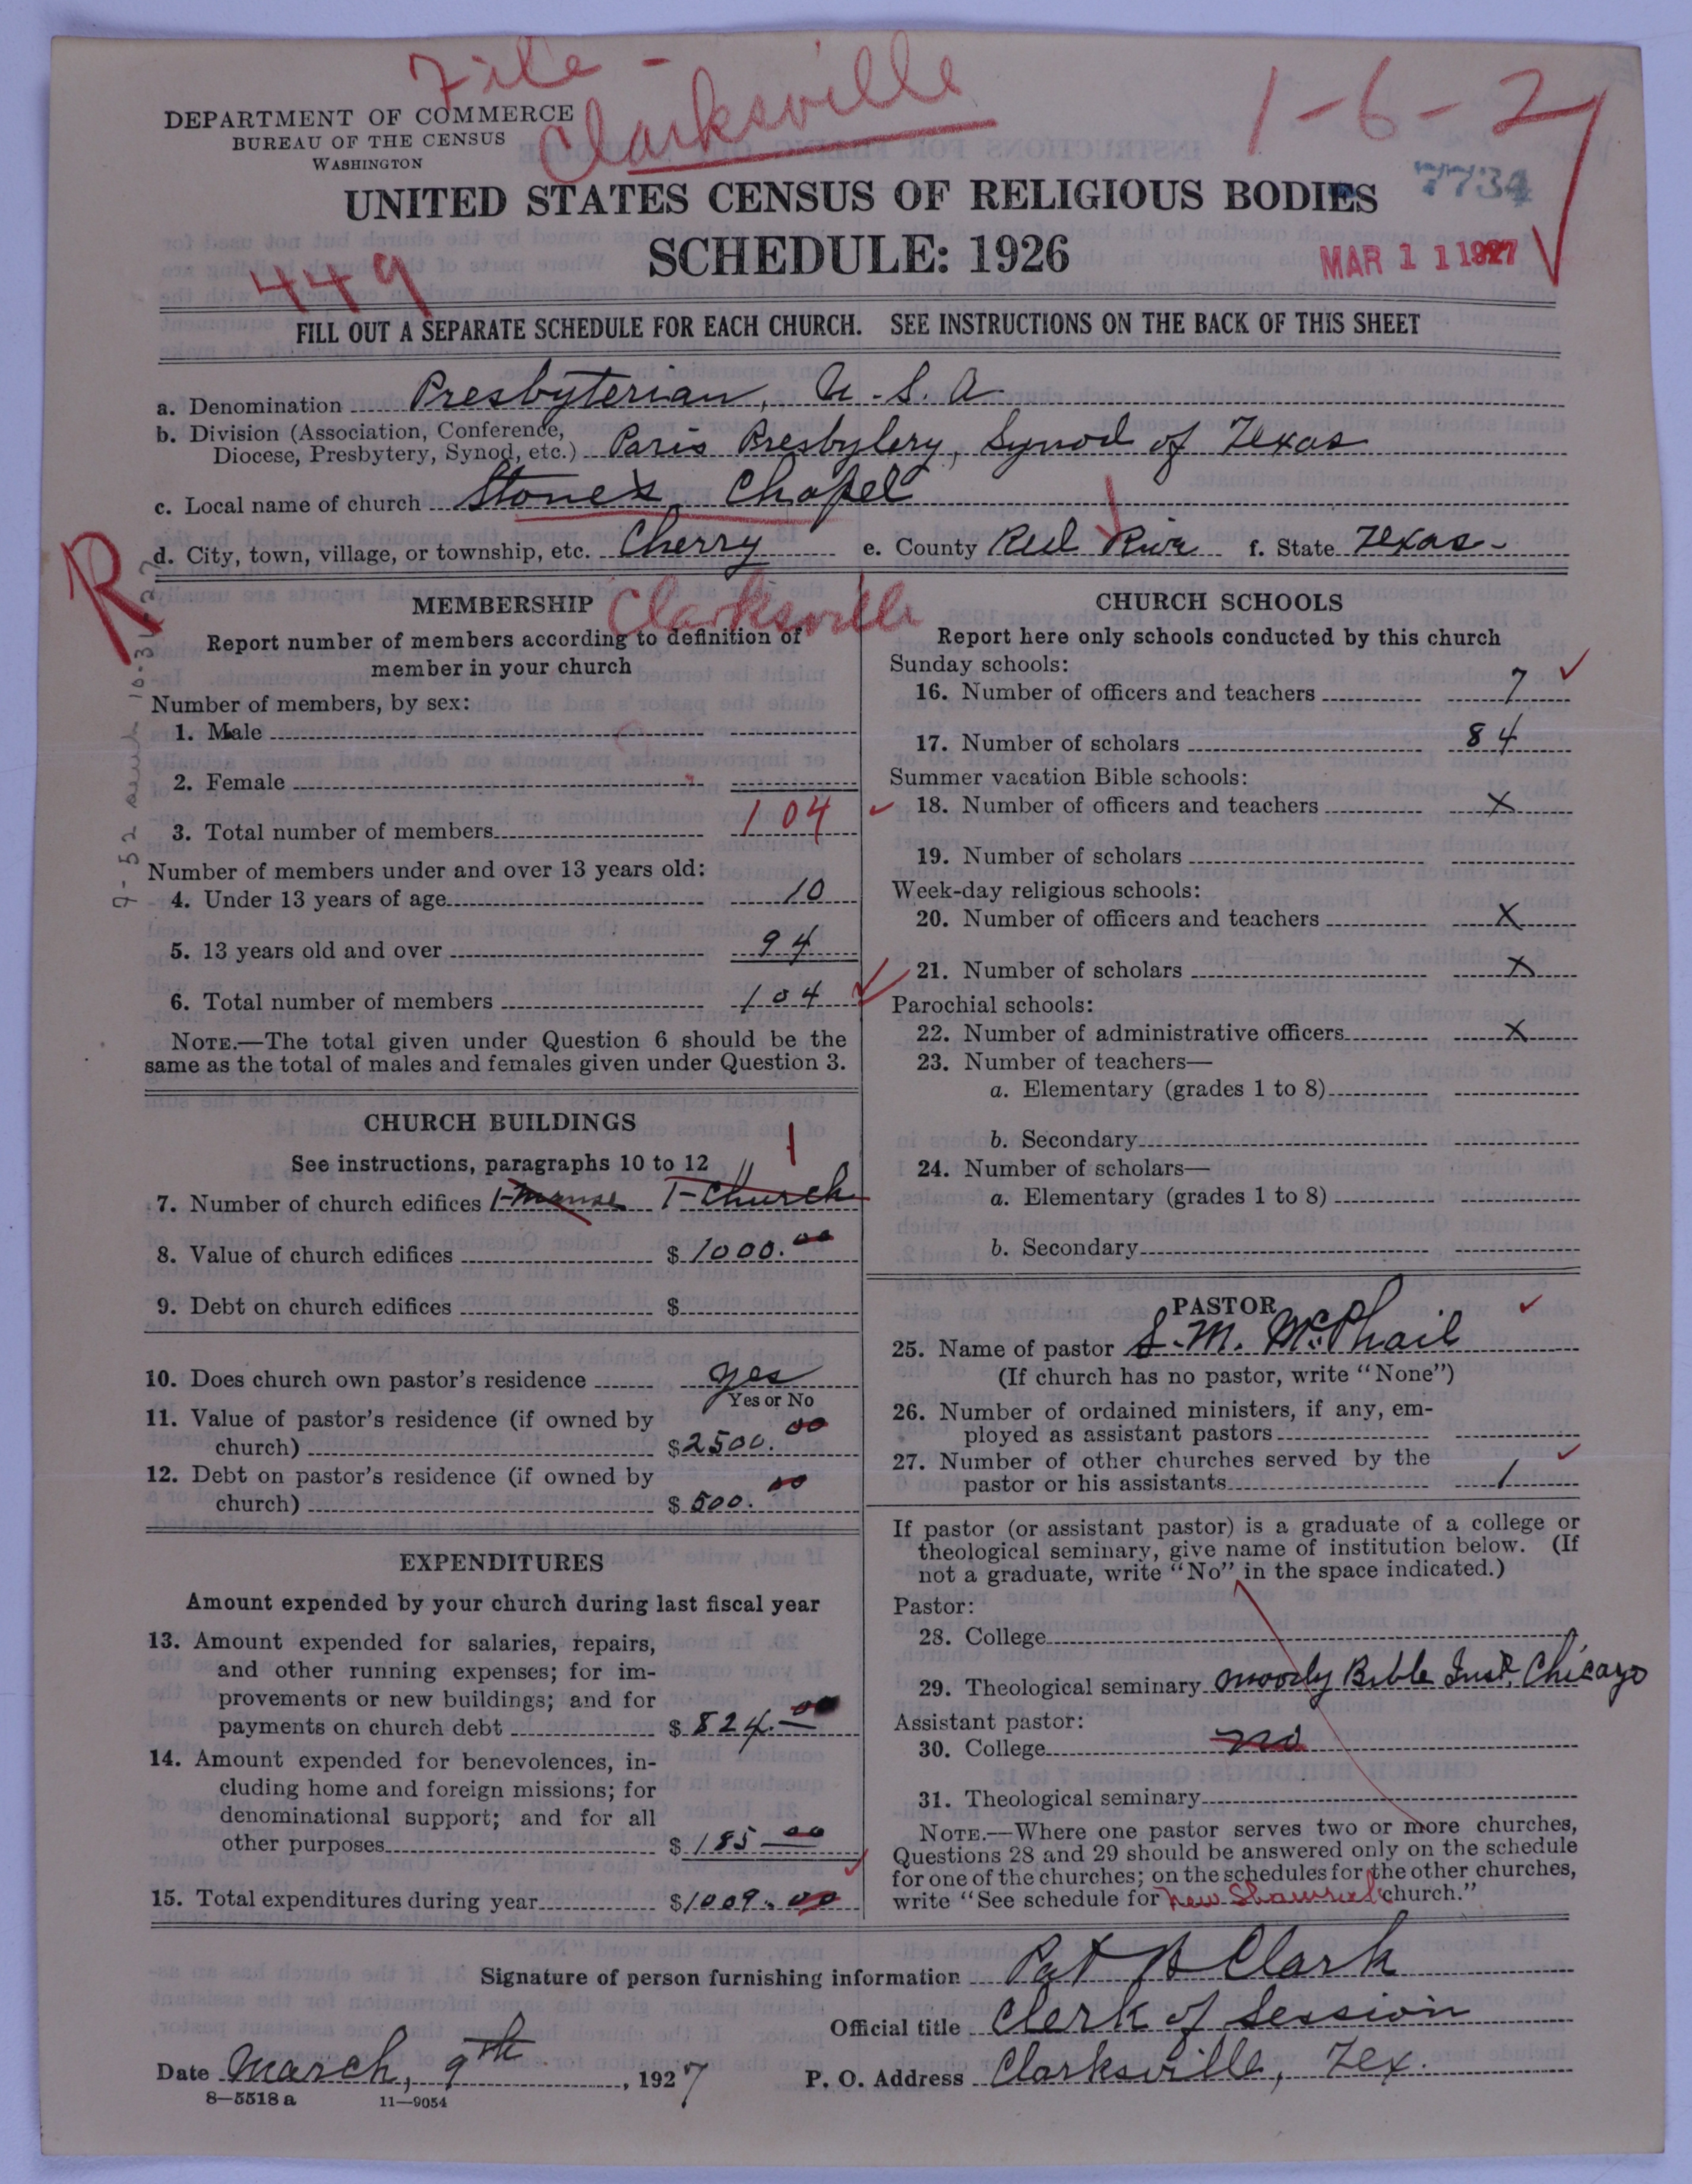 File -
Clarksville
1-6-2
DEPARTMENT OF COMMERCE
BUREAU OF THE CENSUS
WASHINGTON
7734
UNITED STATES CENSUS OF RELIGIOUS BODIES
SCHEDULE: 1926
MAR 11 1927
449
FILL OUT A SEPARATE SCHEDULE FOR EACH CHURCH. SEE INSTRUCTIONS ON THE BACK OF THIS SHEET
a. Denomination Presbyterian, U.S.A.
b. Division (Association, Conference,
Diocese, Presbytery, Synod, etc.) Paris Presbytery, Synod of Texas
c. Local name of church Stones Chapel
d. City, town, village, or township, etc. Cherry e. County Red River f. State Texas-
R
Clarksville
MEMBERSHIP
Report number of members according to definition of
member in your church
Number of members, by sex:
1. Male
2. Female
3. Total number of members 104
Number of members under and over 13 years old:
4. Under 13 years of age 10
5. 13 years old and over 94
6. Total number of members 104
NOTE.—The total given under Question 6 should be the
same as the total of males and females given under Question 3.
CHURCH BUILDINGS
See instructions, paragraphs 10 to 12
1
7. Number of church edifices 1-manse 1-Church
8. Value of church edifices $1000.00
9. Debt on church edifices $
10. Does church own pastor's residence yes
Yes or No
11. Value of pastor's residence (if owned by
church) $2500.00
12. Debt on pastor's residence (if owned by
church) $500.00
EXPENDITURES
Amount expended by your church during last fiscal year
13. Amount expended for salaries, repairs,
and other running expenses; for im-
provements or new buildings; and for
payments on church debt $824.00
14. Amount expended for benevolences, in-
cluding home and foreign missions; for
denominational support; and for all
other purposes $185 00
15. Total expenditures during year $1009.00
CHURCH SCHOOLS
Report here only schools conducted by this church
Sunday schools:
16. Number of officers and teachers 7
17. Number of scholars 84
Summer vacation Bible schools:
18. Number of officers and teachers X
19. Number of scholars
Week-day religious schools:
20. Number of officers and teachers X
21. Number of scholars X
Parochial schools:
22. Number of administrative officers X
23. Number of teachers—
a. Elementary (grades 1 to 8)
b. Secondary
24. Number of scholars—
a. Elementary (grades 1 to 8)
b. Secondary
PASTOR
25. Name of pastor S.M. McPhail
(If church has no pastor, write "None")
26. Number of ordained ministers, if any, em-
ployed as assistant pastors
27. Number of other churches served by the
pastor or his assistants 1
If pastor (or assistant pastor) is a graduate of a college or
theological seminary, give name of institution below. (If
not a graduate, write "No" in the space indicated.)
Pastor:
28. College
29. Theological seminary Moody Bible Inst. Chicago
Assistant pastor:
30. College no
31. Theological seminary
NOTE.—Where one pastor serves two or more churches,
Questions 28 and 29 should be answered only on the schedule
for one of the churches; on the schedules for the other churches,
write "See schedule for New church."
Signature of person furnishing information Pat B Clark
Official title Clerk of Session
Date March, 9th, 1927 P. O. Address Clarksville, Tex.
8—5518 a 11—9054